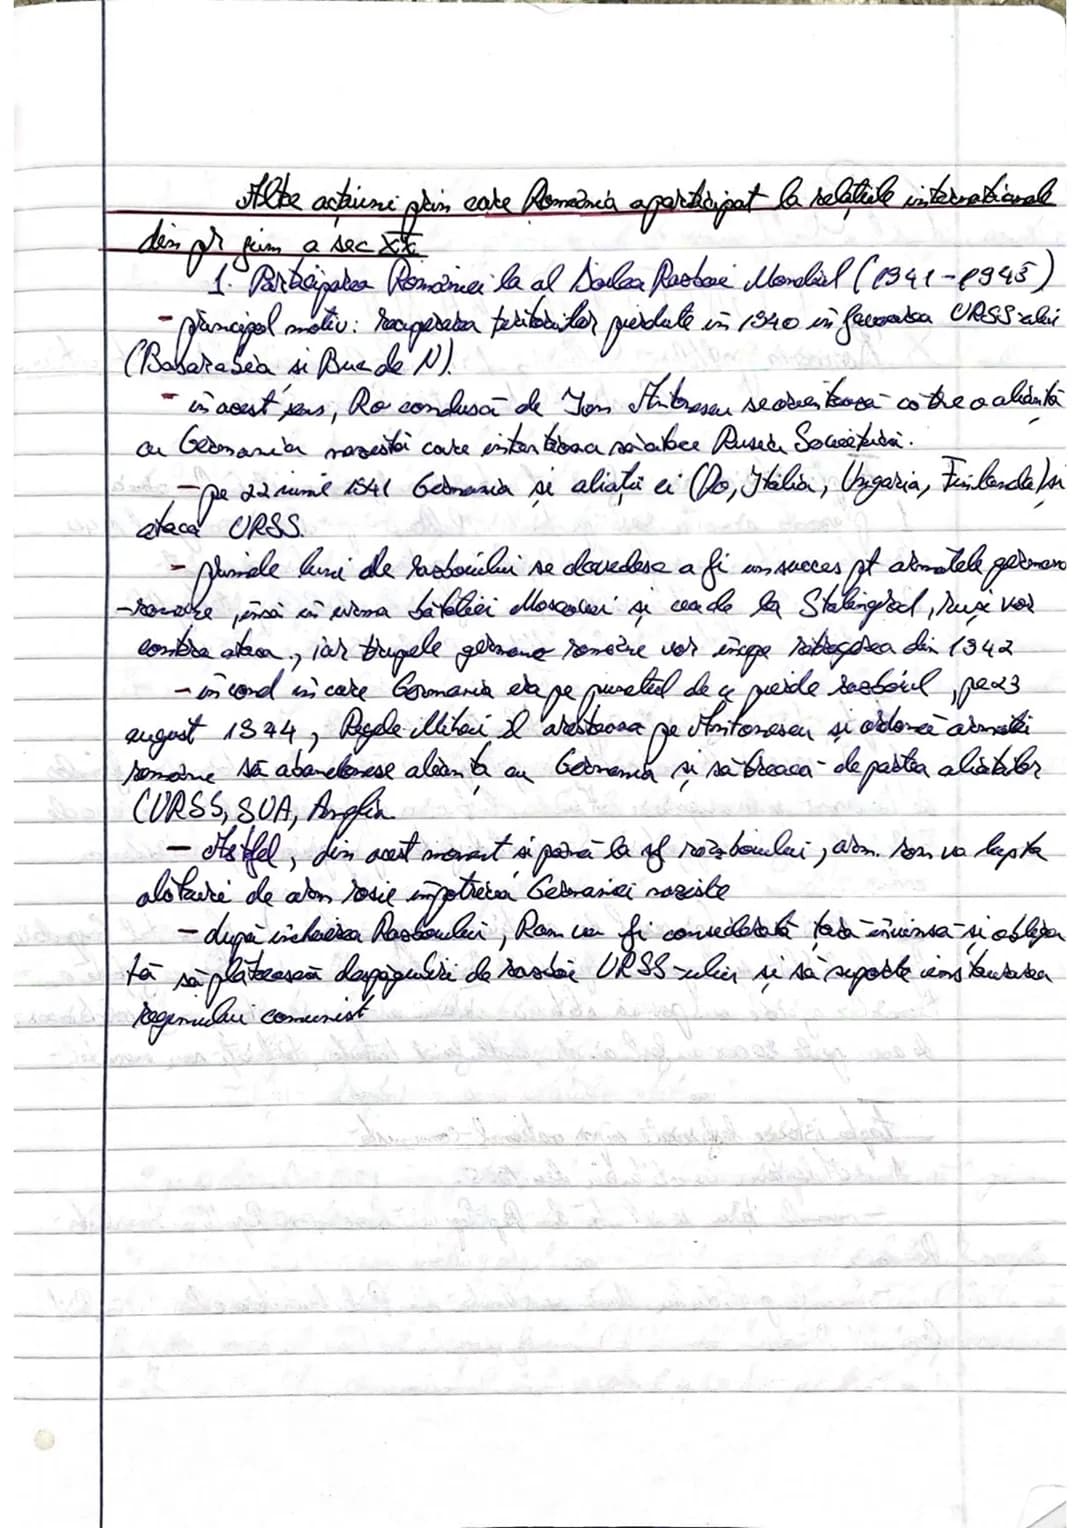 Alte acțiuni prin care România a participat la relațiile internaționale
din pr jum a sec XX
1. Participarea României la al Doilea Razboi Mondial (1941-1945)
- principal motiv: recuperarea teritoriilor pierdute in 1940 in favoarea URSS-ului
(Basarabia si Buc de N).
- in acest sens, Ro condusă de Ion Antonescu se orientează către o alianță
cu Germania nazistă care intentiona sa atace Rusia Sovietică.
- pe 22 iunie 1941 Germania și aliații ei (Ro, Italia, Ungaria, Finlanda) si
atacă URSS.
- primele luni ale razboiului se dovedesc a fi un succes pt armatele germano
-romane, însă in urma bătăliei Moscovei și cea de la Stalingrad, rușii vor
contra ataca, iar trupele germano române vor incepe retragerea din 1942
- in cond in care Germania era pe punctul de a pierde razboiul, pe 23
august 1944, Regele Mihai il aresteaza pe Antonescu și ordonă armatei
române să abandonese alianța cu Germania și să treacă de partea aliatilor
(URSS, SUA, Anglia
- Astfel, din acest moment si pană la sf războiului, arm. rom va lupta
alături de arm rosie impotriva Germaniei naziste
- după incheierea Razboiului, Rom va fi considerată țară invinsă si obliga
tă să plătească despagubiri de razboi URSS-ului si să suporte instaurarea
regimului comunist